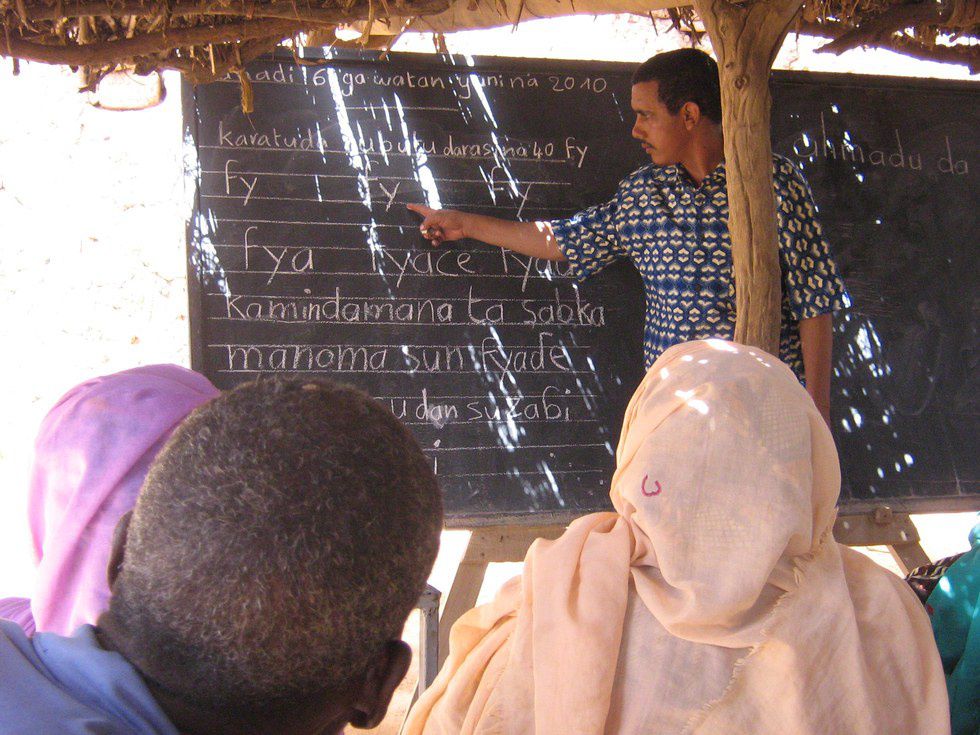 6 ga watan yunina 2010
karatuda rubutu darasina 40 fy
fy fy fy
fya fyace fyade
Kamindamana ta sabka
manoma sun fyade
dan suzabi
ahmadu da